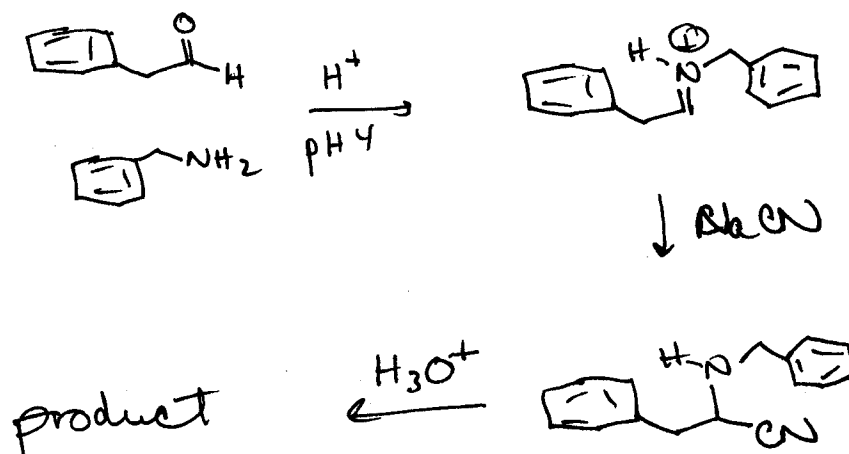 O
H
H+
pH 4
NH2
H-N+
NaCN
H-N
CN
H3O+
product